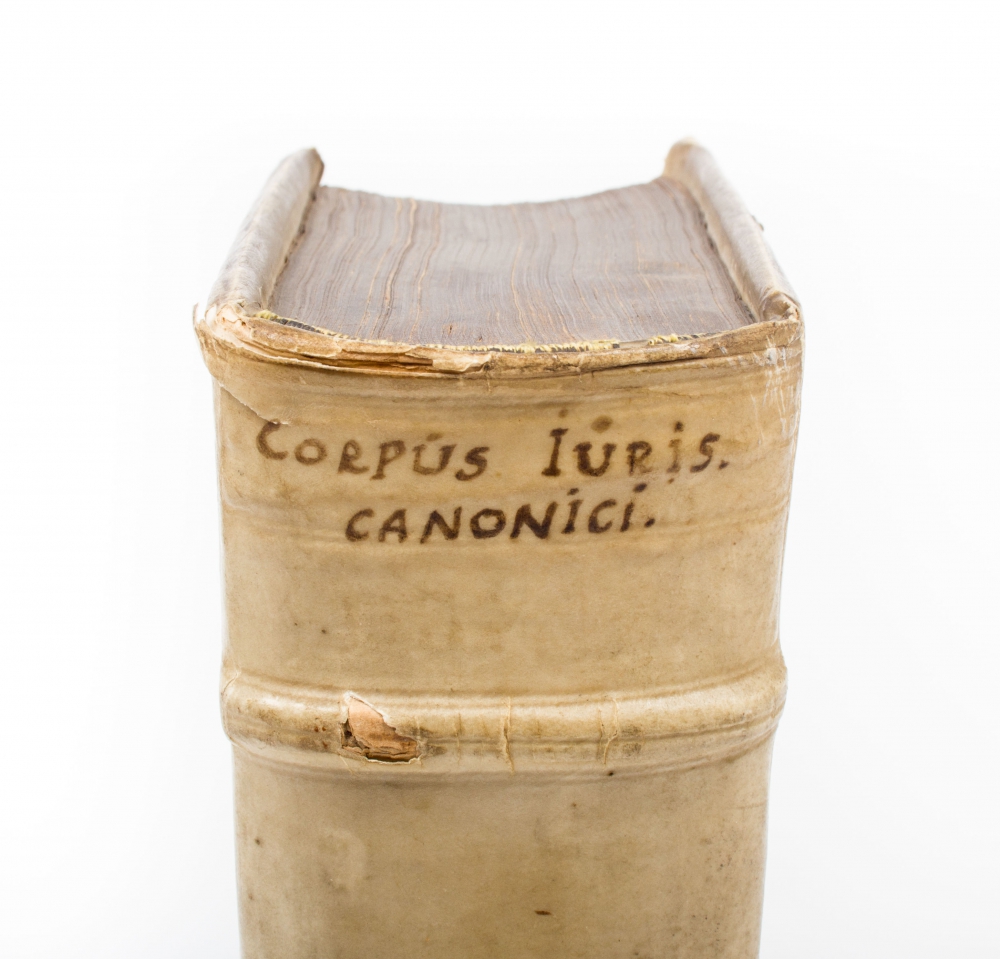 CORPUS IURIS.
CANONICI.